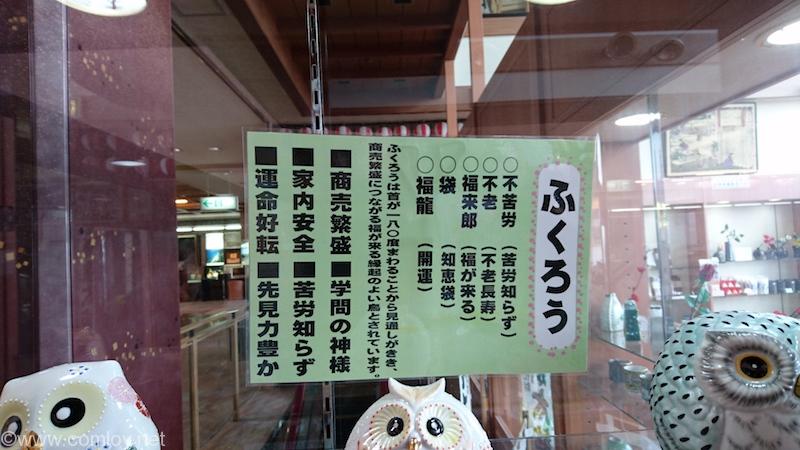 ふくろう
○不苦労 (苦労知らず)
○不老 (不老長寿)
○福来郎 (福が来る)
○袋 (知恵袋)
○福龍 (開運)
ふくろうは首が一八〇度まわることから見通しがきき、
商売繁盛につながる福が来る縁起のよい鳥とされています。
■商売繁盛 ■学問の神様
■家内安全 ■苦労知らず
■運命好転 ■先見力豊か
©www.comloy.net